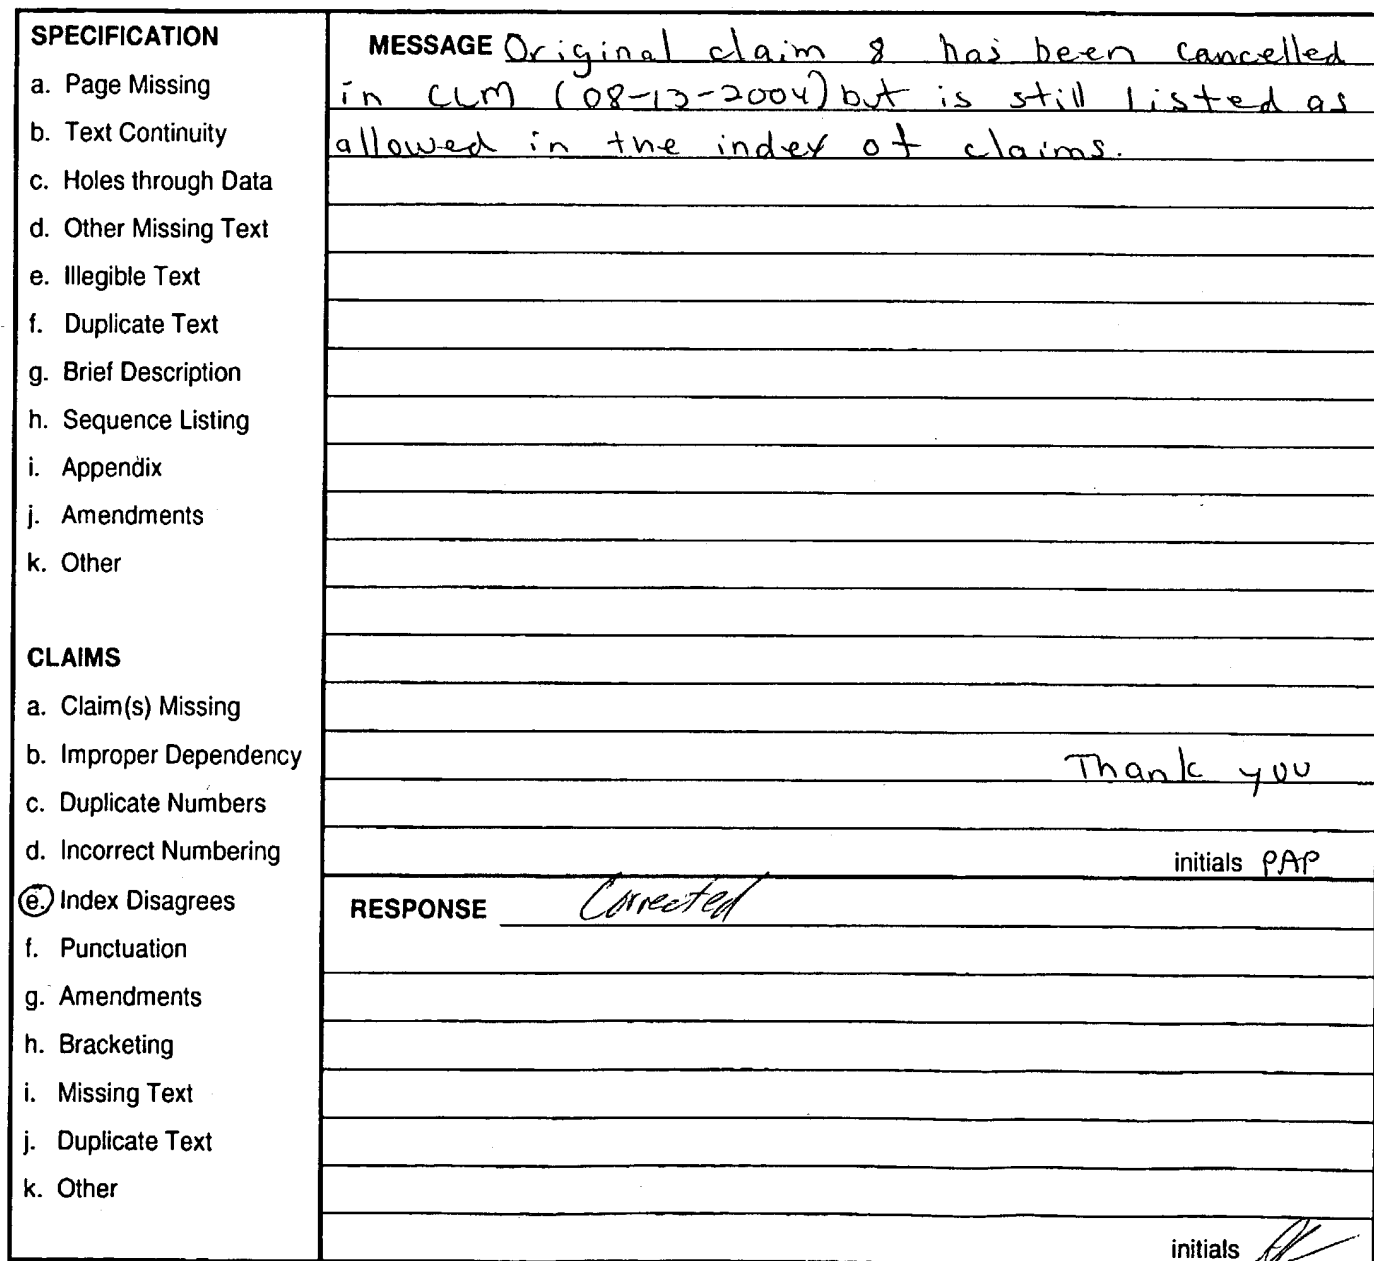 SPECIFICATION
a. Page Missing
b. Text Continuity
c. Holes through Data
d. Other Missing Text
e. Illegible Text
f. Duplicate Text
g. Brief Description
h. Sequence Listing
i. Appendix
j. Amendments
k. Other
CLAIMS
a. Claim(s) Missing
b. Improper Dependency
c. Duplicate Numbers
d. Incorrect Numbering
e. Index Disagrees
f. Punctuation
g. Amendments
h. Bracketing
i. Missing Text
j. Duplicate Text
k. Other
MESSAGE Original claim 8 has been cancelled
in CLM (08-12-2004) but is still listed as
allowed in the index of claims.
Thank you
initials PAP
RESPONSE Corrected
initials